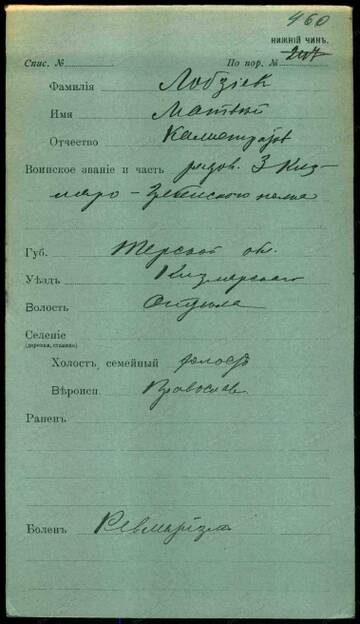 460
НИЖНІЙ ЧИНЪ.
Спис. № По пор. №
Фамилія Лобзiек
Имя Матвѣй
Отчество
Воинское званіе и часть рядов. 3 Киз-
ляро-Гребенского полка
Губ. Терской об.
Уѣздъ Кизлярскаго
Волость Отдѣла
Селеніе
(деревня, станица)
Холостъ, семейный холостъ
Вѣроисп. Православ.
Раненъ
Боленъ Ревматизм